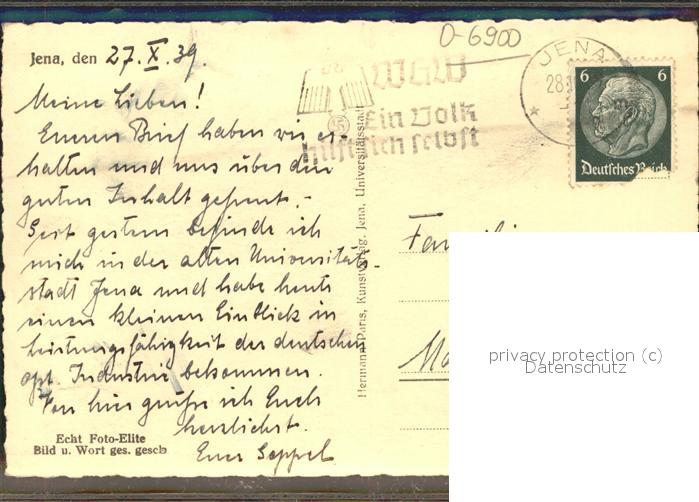 O-6900
Jena, den 27.X.39.
WHW
Ein Volk
hilft sich selbst
JENA
28.
6 6
Deutsches Reich
Meine Lieben!
Eueren Brief haben wir er-
halten und uns über den
guten Inhalt gefreut.-
Seit gestern befinde ich
mich in der alten Universitäts-
stadt Jena und habe heute
einen kleinen Einblick in
Leistungsfähigkeit der deutschen
opt. Industrie bekommen.
Von hier grüße ich Euch
herzlichst.
Euer Seppel
Echt Foto-Elite
Bild u. Wort ges. gesch
Hermann Paris, Kunstverlag, Jena, Universitätsstadt
Fam
Ma
privacy protection (c)
Datenschutz